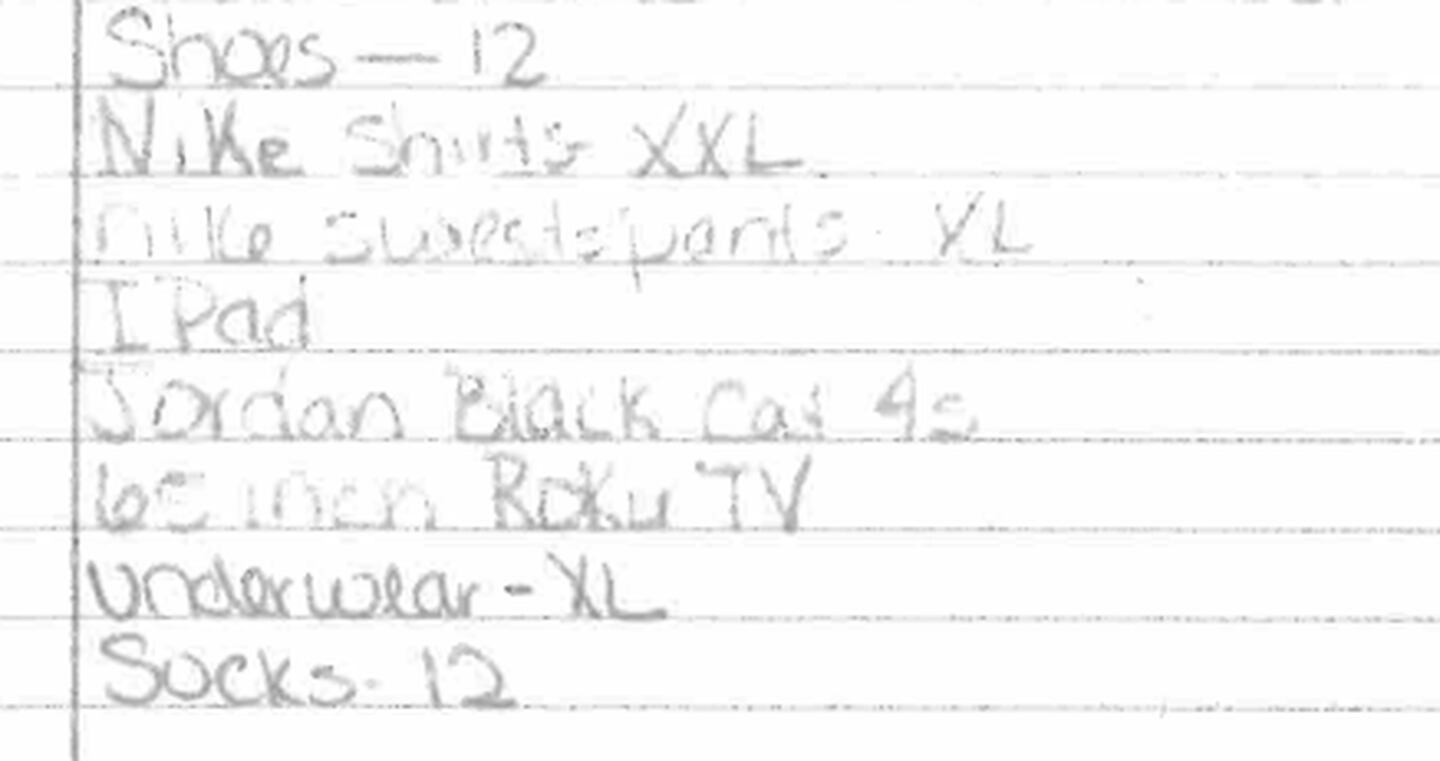 Shoes — 12
Nike Shirts XXL
nike sweatspants XL
I Pad
Jordan Black Cat 4s
65 inch Roku TV
underwear - XL
Socks - 12